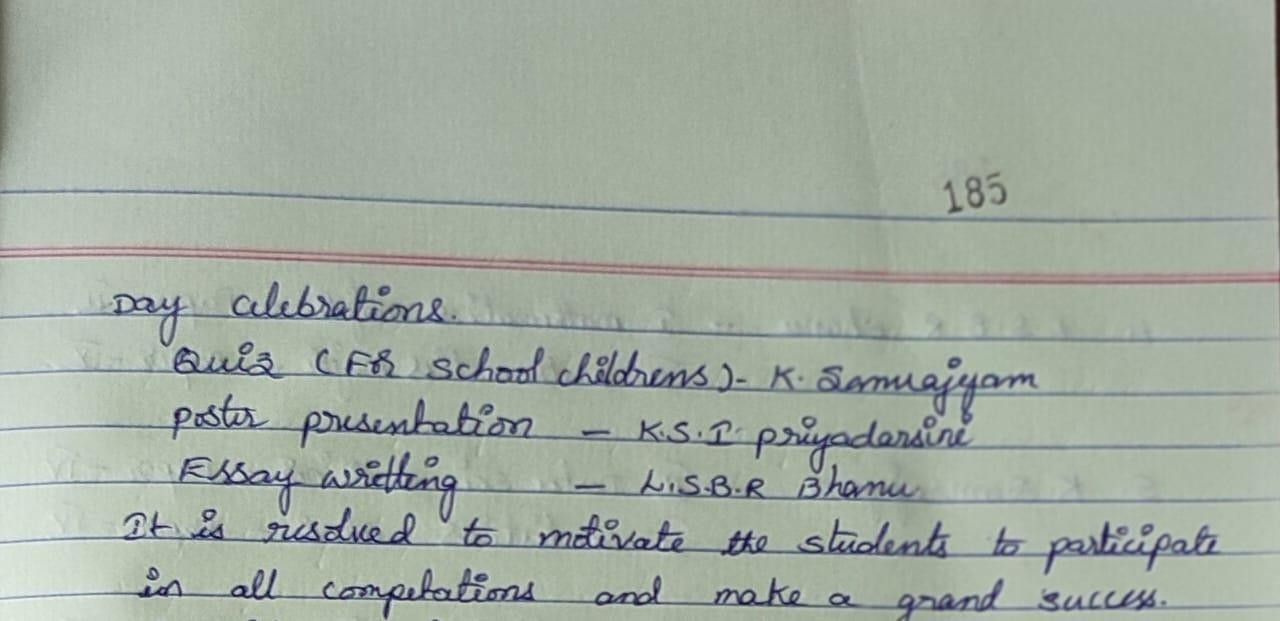 185
Day celebrations.
Quiz (For school childrens) - K. Samrajyam
poster presentation - K.S.I. priyadarsini
Essay writting - L.S.B.R Bhanu
It is resolved to motivate the students to participate
in all competations and make a grand success.